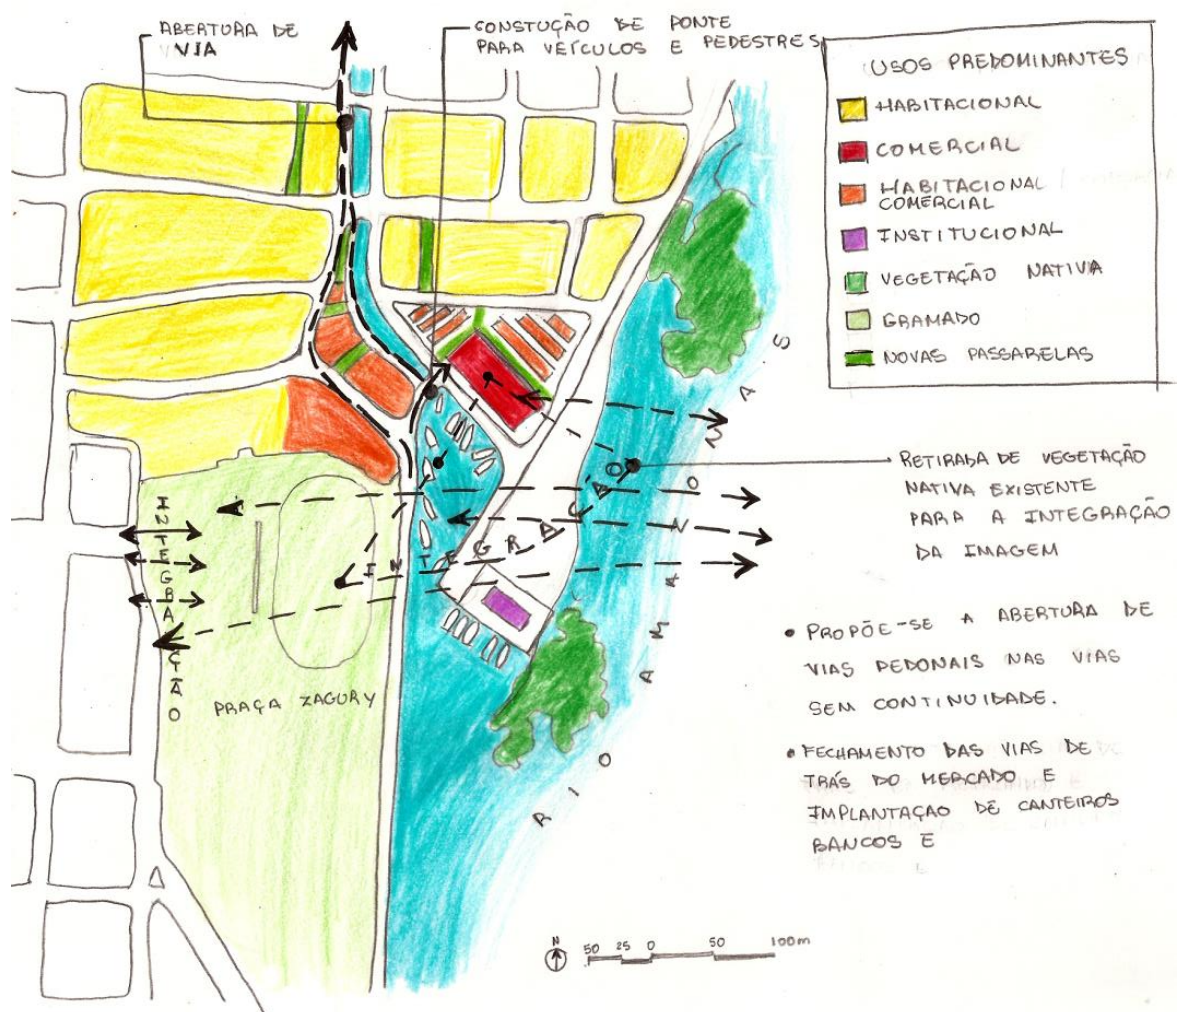 ABERTURA DE
VIA
CONSTUÇÃO DE PONTE
PARA VEÍCULOS E PEDESTRES
USOS PREDOMINANTES
HABITACIONAL
COMERCIAL
HABITACIONAL
COMERCIAL
INSTITUCIONAL
VEGETAÇÃO NATIVA
GRAMADO
NOVAS PASSARELAS
RETIRADA DE VEGETAÇÃO
NATIVA EXISTENTE
PARA A INTEGRAÇÃO
DA IMAGEM
INTEGRAÇÃO
INTEGRAÇÃO
PRAÇA ZAGURY
RIO AMAZONAS
• PROPÕE-SE A ABERTURA DE
VIAS PEDONAIS NAS VIAS
SEM CONTINUIDADE.
• FECHAMENTO DAS VIAS DE
TRÁS DO MERCADO E
IMPLANTAÇÃO DE CANTEIROS
BANCOS E
N
50 25 0 50 100m